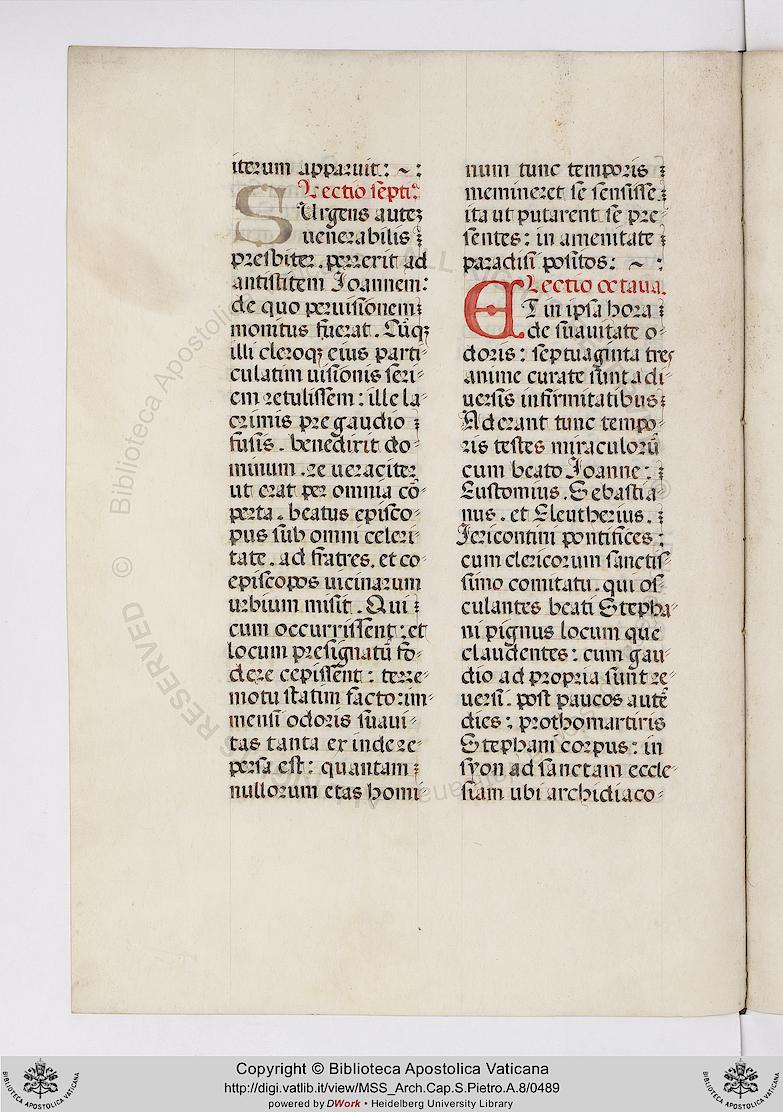 iterum apparuit: ~ :
Lectio septi͞a
SUrgens auteʒ
uenerabilis ⁊
presbiter . perrexit ad
antistitem Joannem:
de quo per uisionem ⁊
monitus fuerat . Cūqʒ
illi cleroqʒ eius parti-
culatim uisionis seri-
em retulissem: ille la-
crimis pre gaudio ⁊
fusis . benedixit do-
minum . re ueraciter
ut erat per omnia cō-
perta . beatus episco-
pus sub omni celeri-
tate . ad fratres . et co-
episcopos uicinarum
urbium misit . Qui ⁊
cum occurrissent: et
locum presignatū fo-
dere cepissent: terre-
motu statim facto: im-
mensi odoris suaui-
tas tanta ex inde re-
persa est: quantam ⁊
nullorum etas homi-
num tunc temporis ⁊
memineret se sensisse ⁊
ita ut putarent se pre-
sentes: in amenitate ⁊
paradisi positos: ~ :
Lectio octaua.
ET in ipsa hora ⁊
de suauitate o-
doris: septuaginta tres
anime curate sunt a di-
uersis infirmitatibus ⁊
Aderant tunc tempo-
ris testes miraculorū
cum beato Joanne: ⁊
Eustomius . Sebastia-
nus . et Eleutherius . ⁊
Jericontini pontifices:
cum clericorum sanctis-
simo comitatu . qui os-
culantes beati Stepha-
ni pignus locum que
claudentes: cum gau-
dio ad propria sunt re-
uersi . post paucos autē
dies: prothomartiris
Stephani corpus: in
syon ad sanctam eccle-
siam ubi archidiaco-
© Biblioteca Apostolica Vaticana ALL RIGHTS RESERVED
Copyright © Biblioteca Apostolica Vaticana
http://digi.vatlib.it/view/MSS_Arch.Cap.S.Pietro.A.8/0489
powered by DWork • Heidelberg University Library
BIBLIOTECA APOSTOLICA VATICANA
BIBLIOTECA APOSTOLICA VATICANA